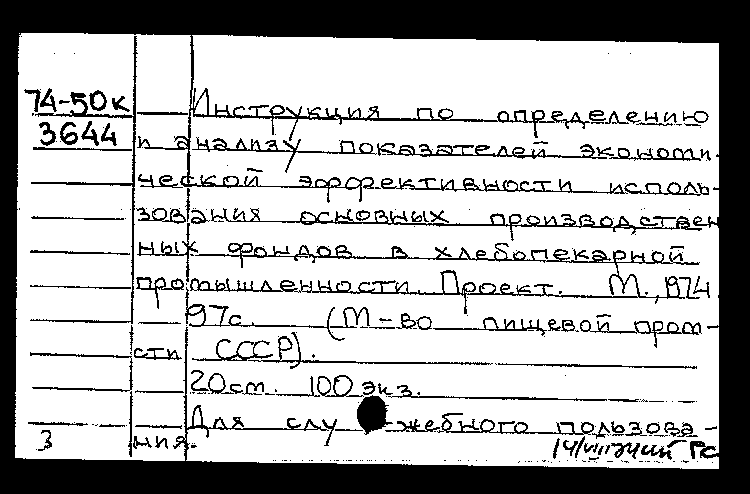 74-50к
3644
Инструкция по определению
и анализу показателей экономи-
ческой эффективности исполь-
зования основных производствен
ных фондов в хлебопекарной
промышленности. Проект. М., 1974
97с. (М-во пищевой пром-
сти СССР).
20см. 100 экз.
Для служебного пользова-
3 ния.